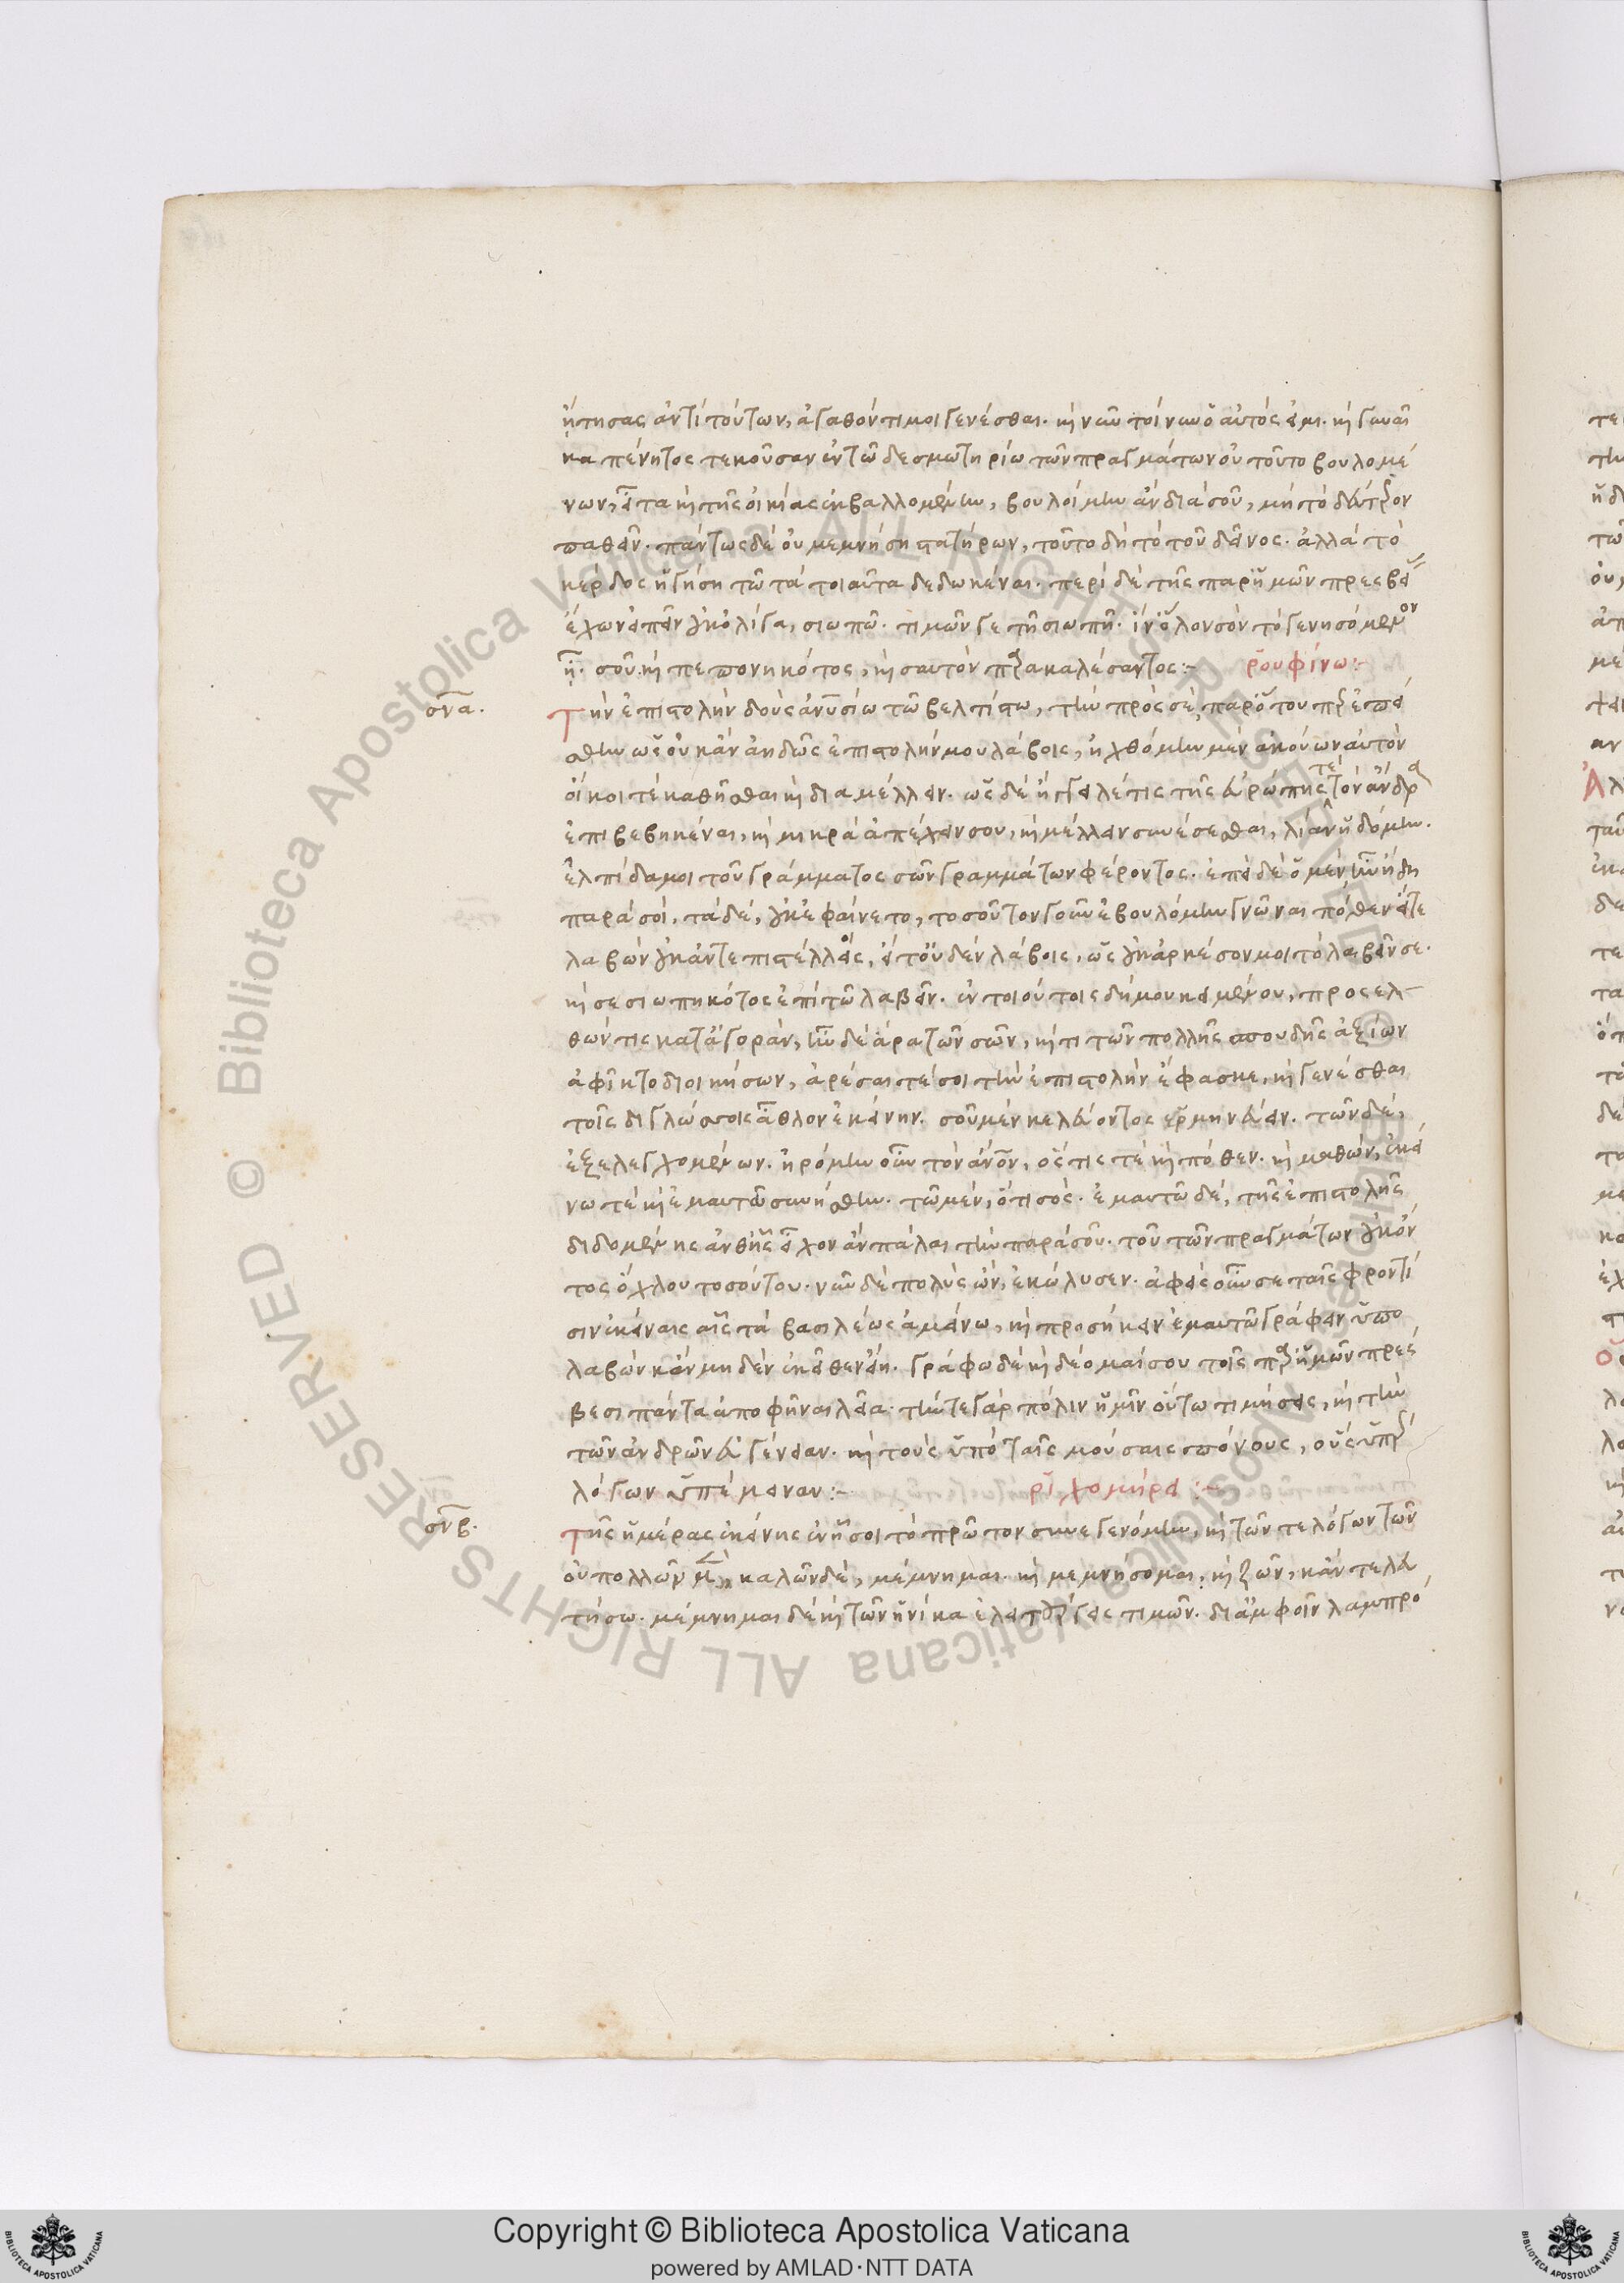 ᾔτησας ἀντὶ τούτων, ἀγαθόν τι μοι γενέσθαι. καὶ νῦν τοίνυν ὁ αὐτός εἰμι. καὶ γυναῖ
κα πένητος τεκοῦσαν ἐν τῶ δεσμωτηρίω τῶν πραγμάτων οὐ τοῦτο βουλομέ
νων, εἶτα καὶ τῆς οἰκίας ἐκβαλλομένην, βουλοίμην ἂν διὰ σοῦ, μὴ τὸ δεύτερον
παθεῖν. πάντως δὲ οὐ μεμνήση στατήρων, τοῦτο δὴ τὸ τοῦ δεῖνος. ἀλλὰ τὸ
κέρδος ἡγήση τῶ τὰ τοιαῦτα δεδωκέναι. περὶ δὲ τῆς παρ' ἡμῶν πρεσβεί
ἔχων εἰπεῖν οὐκ ὀλίγα, σιωπῶ. τιμῶν γε τῆ σιωπῆ. ἵν' ὅλον σὸν τὸ γενησόμενον
ᾖ. σοῦ καὶ πεπονηκότος, καὶ σαυτὸν παρακαλέσαντος :- ῥουφίνω :-
σνα.
Τὴν ἐπιστολὴν δοὺς ἀνυσίω τῶ βελτίστω, τὴν πρὸς σέ, παρ' ὅτου περ ἐπεί
σθην ὡς οὐκ ἂν ἀηδῶς ἐπιστολήν μου λάβοις, ἠχθόμην μὲν ἀκούων αὐτὸν
οἴκοι τὲ καθῆσθαι καὶ διαμέλλειν. ὡς δὲ ἤγγειλέ τις τῆς εὐρώπης τὲ τὸν ἄνδρα
ἐπιβεβηκέναι, καὶ μικρὰ ἀπέχειν σου, καὶ μέλλειν συνέσεσθαι, λίαν ἡδόμην.
ἐλπίδα μοι τοῦ γράμματος σῶν γραμμάτων φέροντος. ἐπεὶ δὲ ὁ μὲν ἦν ἤδη
παρὰ σοί, τὰ δέ, οὐκ ἐφαίνετο, τοσοῦτον γοῦν ἐβουλόμην γνῶναι πόθεν εἴτε
λαβὼν οὐκ ἀντεπιστέλλοις, εἴτ' οὐδὲν λάβοις, ὡς οὐκ ἀρκέσον μοι τὸ λαβεῖν σε.
καὶ σεσιωπηκότος ἐπὶ τῶ λαβεῖν. ἐν τοιούτοις δή μου κειμένου, προσελ-
θών τις κατ' ἀγοράν, ἦν δὲ ἄρα τῶν σῶν, καί τι τῶν πολλῆς σπουδῆς ἀξίων
ἀφῖκτο διοικήσων, ἀρέσαι τέ σοι τὴν ἐπιστολὴν ἔφασκε, καὶ γενέσθαι
τοῖς διγλώσσοις ἆθλον ἐκείνην. σοῦ μὲν κελεύοντος ἑρμηνεύειν. τῶν δέ,
ἐξελεγχομένων. ἠρόμην οὖν τὸν ἄνον, ὅστις τὲ καὶ πόθεν. καὶ μαθών, ἐκεί
νω τὲ καὶ ἐμαυτῶ συνήσθην. τῶ μέν, ὅτι σός. ἐμαυτῶ δέ, τῆς ἐπιστολῆς
διδομένης ἀνθ' ἧς εἶχον ἂν πάλαι τὴν παρὰ σοῦ. τοῦ τῶν πραγμάτων οὐκ ὄν
τος ὄχλου τοσούτου. νῦν δὲ πολὺς ὤν, ἐκώλυσεν. ἀφεὶς οὖν σε ταῖς φροντί
σιν ἐκείναις αἷς τὰ βασιλέως ἀμείνω, καὶ προσήκειν ἐμαυτῶ γράφειν ὑπο
λαβὼν κἂν μηδὲν ἐκεῖθεν εἴη. γράφω δὲ καὶ δέομαί σου τοῖς παρ' ἡμῶν πρέσ
βεσι πάντα ἀποφῆναι λεῖα. τήν τε γὰρ πόλιν ἡμῖν οὕτω τιμήσεις, καὶ τὴν
τῶν ἀνδρῶν εὐγένειαν. καὶ τοὺς ὑπὸ ταῖς μούσαις πόνους, οὓς ὑπὲρ
λόγων ὑπέμειναν :- ῥιχομήρει :-
σνβ.
Τῆς ἡμέρας ἐκείνης ἐν ἧ σοι τὸ πρῶτον συνεγενόμην, καὶ τῶν τε λόγων τῶν
οὐ πολλῶν μὲν, καλῶν δέ, μέμνημαι. καὶ μεμνήσομαι, καὶ ζῶν, κἂν τελευ
τήσω. μέμνημαι δὲ καὶ τῶν ἡνίκα ἐλειτούργεις τιμῶν. δι' ἀμφοῖν λαμπρό
Copyright © Biblioteca Apostolica Vaticana
powered by AMLAD·NTT DATA